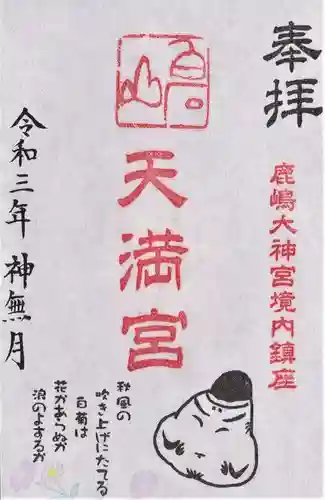 奉拝
鹿嶋大神宮境内鎮座
天満宮
秋風の
吹き上げにたてる
白菊は
花かあらぬか
浪のよするか
令和三年 神無月